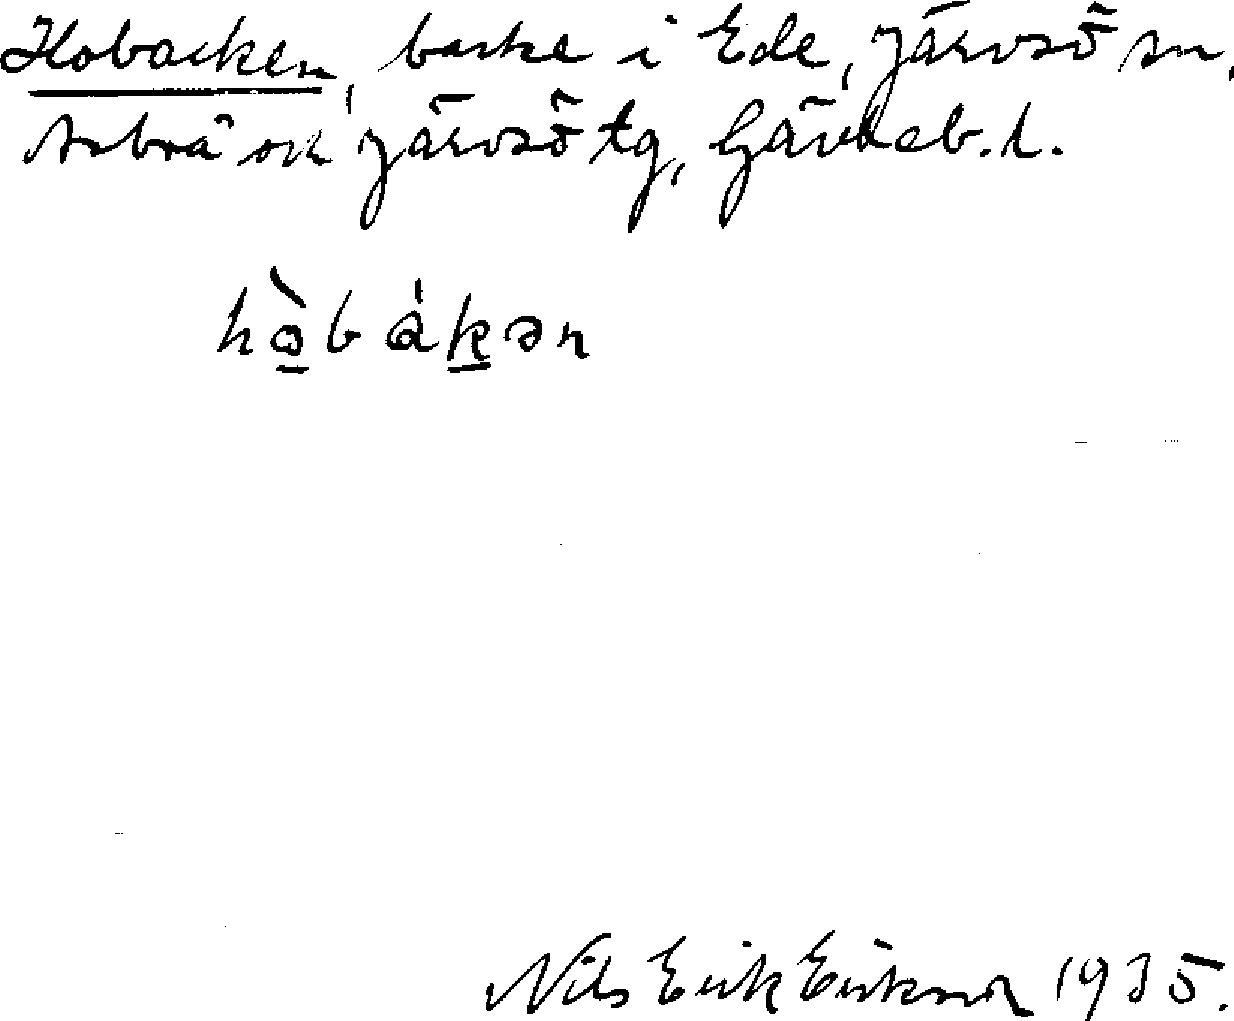 Hobacken, backe i Ede, Järvsö sn,
Arbrå och Järvsö tg, Gävleb. l.
hὸ̱báḵən
Nils Erik Eriksson 1935.